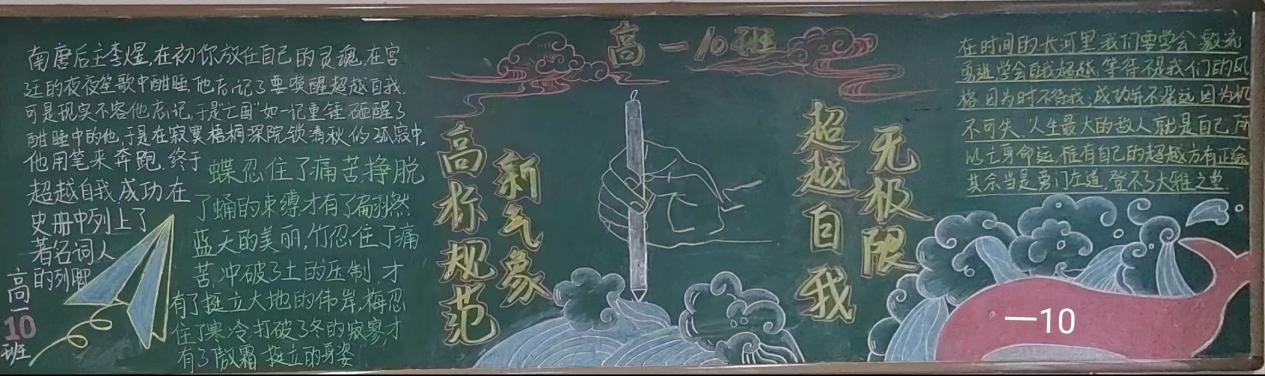 南唐后主李煜,在初你放任自己的灵魂,在宫
廷的夜夜笙歌中酣睡,他忘记了要唤醒超越自我.
可是现实不容他忘记,于是"亡国"如一记重锤砸醒了
酣睡中的他,于是在寂寞梧桐深院锁清秋的孤寂中,
他用笔来奔跑.终于
超越自我成功在
史册中列上了
著名词人
的列
高一
10
班
蝶忍住了痛苦,挣脱
了蛹的束缚才有了翩翩然
蓝天的美丽,竹忍住了痛
苦,冲破了土的压制,才
有了挺立大地的伟岸,梅忍
住了寒冷,打破了冬的寂寥,才
有了傲霜挺立的身姿
高一10班
高标规范
新气象
超越自我
无极限
在时间的长河里我们要学会激流
勇进,学会自我超越,等待不是我们的风
格,因为时不待我,成功并不遥远,因为机
不可失,人生最大的敌人就是自己,所
以亡身命运,惟有自己的超越方有正途
其余当是旁门左道,登不了大雅之堂.
一10